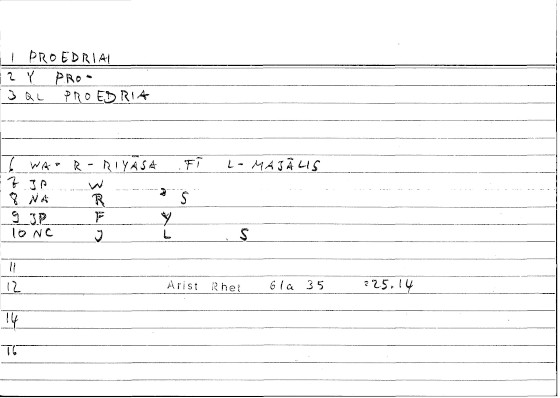 1 PROEDRIAI
2 Y PRO-
3 QL PROEDRIA
6 WA- R-RIYĀSA FĪ L-MAJĀLIS
7 JP W
8 NA R ʾ S
9 JP F Y
10 NC J L S
11
12 Arist Rhet 61a 35 =25.14
14
16